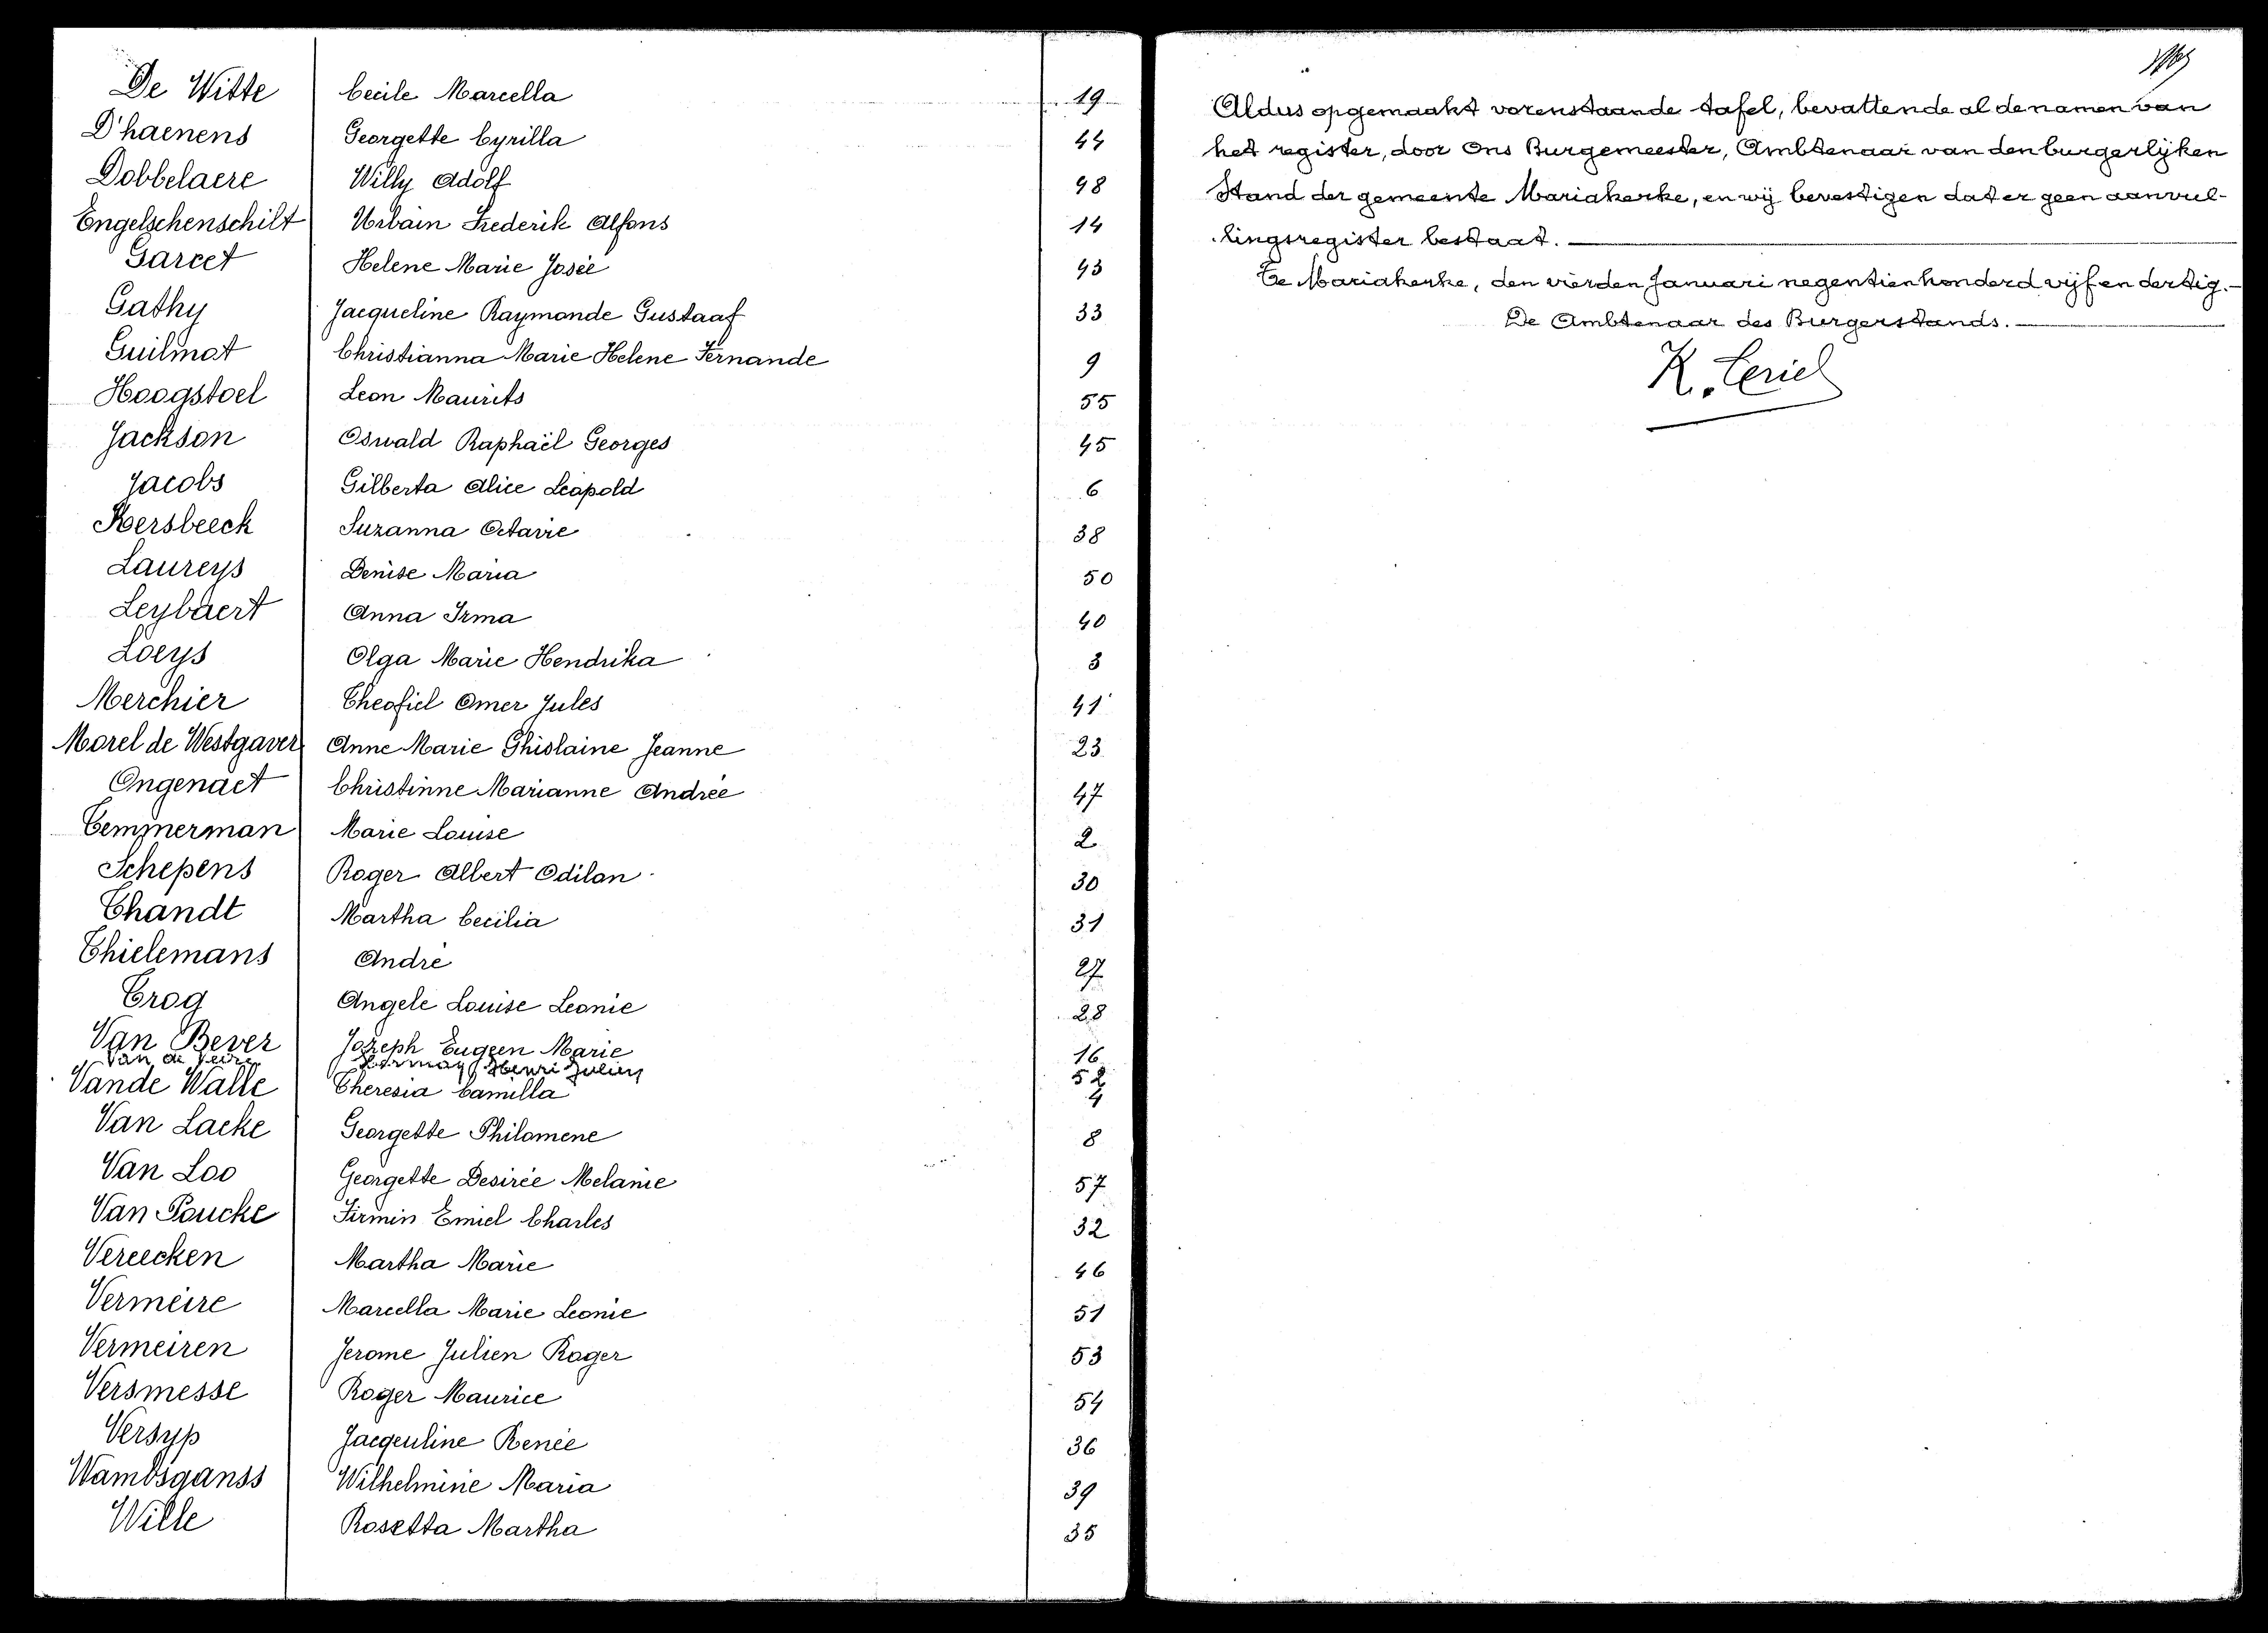 De Witte Cecile Marcella 19
D'haenens Georgette Cyrilla 44
Dobbelaere Willy Adolf 48
Engelschenschilt Urbain Frederik Alfons 14
Garcet Helene Marie Josée 43
Gathy Jacqueline Raymonde Gustaaf 33
Guilmot Christianna Marie Helene Fernande 9
Hoogstoel Leon Maurits 55
Jackson Oswald Raphaël Georges 45
Jacobs Gilberta Alice Leopold 6
Kersbeeck Suzanna Octavie 38
Laureys Denise Maria 50
Leybaert Anna Irma 40
Loeys Olga Marie Hendrika 3
Merchier Theofiel Omer Jules 41
Morel de Westgaver Anne Marie Ghislaine Jeanne 23
Ongenaet Christinne Marianne Andrée 47
Temmerman Marie Louise 2
Schepens Roger Albert Odilon 30
Thandt Martha Cecilia 31
Thielemans André 27
Trog Angele Louise Leonie 28
Van Bever Joseph Eugeen Marie 16
Van de Veire Henri Julien 52
Vande Walle Theresia Camilla 4
Van Laeke Georgette Philomene 8
Van Loo Georgette Desirée Melanie 57
Van Poucke Firmin Emiel Charles 32
Vereecken Martha Marie 46
Vermeire Marcella Marie Leonie 51
Vermeiren Jerome Julien Roger 53
Versmesse Roger Maurice 54
Versyp Jacqeuline Renée 36
Wambsganss Wilhelmine Maria 39
Wille Rosetta Martha 35
Aldus opgemaakt vorenstaande tafel, bevattende al de namen van
het register, door Ons Burgemeester, Ambtenaar van den burgerlijken
Stand der gemeente Mariakerke, en wij bevestigen dat er geen aanvul-
lingsregister bestaat.
Te Mariakerke, den vierden Januari negentienhonderd vijf en dertig.
De Ambtenaar des Burgerstands.